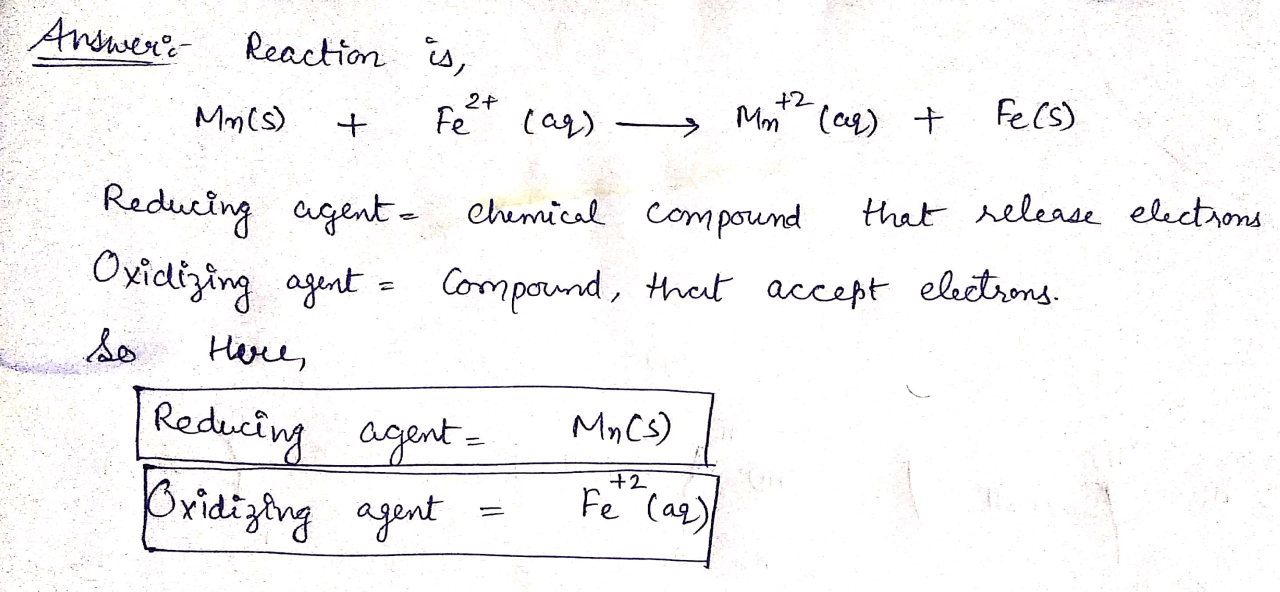 Answer:- Reaction is,
Mn(s) + Fe²⁺ (aq) ⟶ Mn⁺² (aq) + Fe(s)
Reducing agent = chemical compound that release electrons
Oxidizing agent = Compound, that accept electrons.
So Here,
Reducing agent = Mn(s)
Oxidizing agent = Fe⁺² (aq)